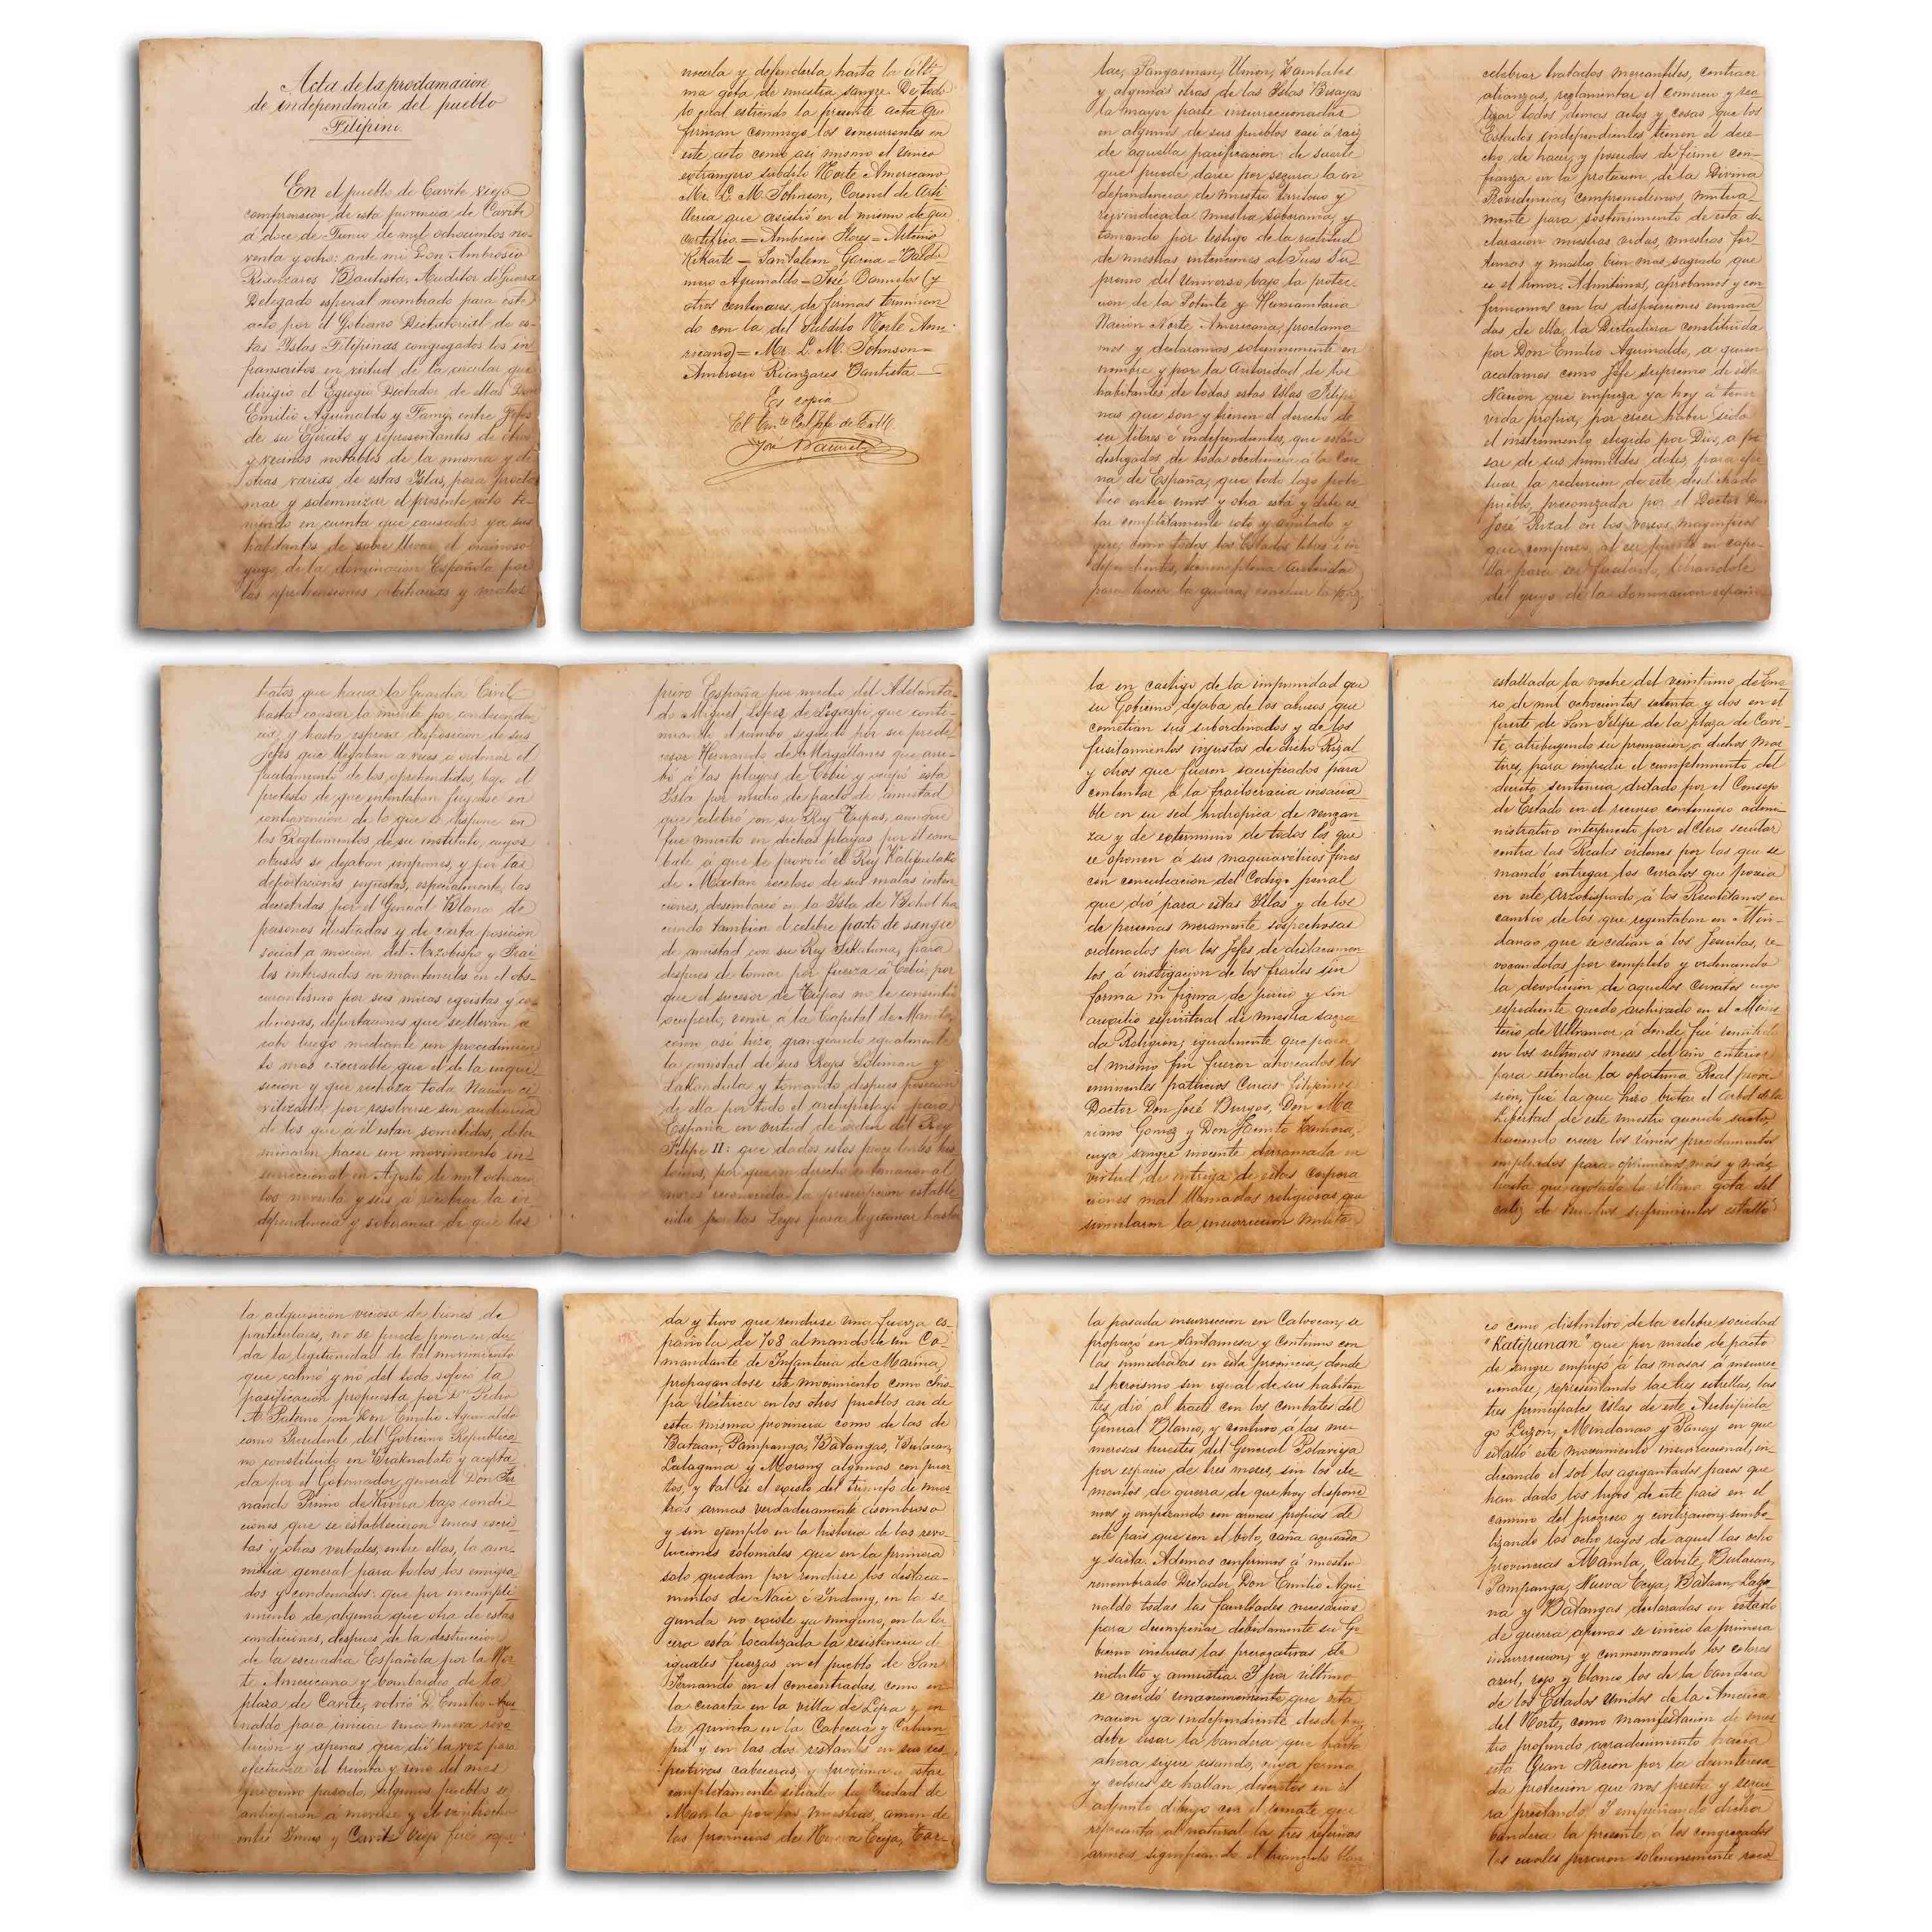 Acta de la proclamacion
de independencia del pueblo
Filipino.
En el pueblo de Cavite viejo
comprension de esta provincia de Cavite
á doce de Junio de mil ochocientos no-
venta y ocho: ante mi Don Ambrosio
Rianzares Bautista, Auditor de Guerra
Delegado especial nombrado para este
acto por el Gobierno Dictatorial de es-
tas Islas Filipinas, congregados los in-
franscritos en virtud de la circular que
dirigió el Egregio Dictador de ellas Don
Emilio Aguinaldo y Famy, entre Jefes
de su Ejército y representantes de
y vecinos notables de la misma y de
otras varias de estas Islas, para procla-
mar y solemnizar el presente acto te-
niendo en cuenta que cansados ya sus
habitantes de sobre llevar el ominoso
yugo de la dominacion Española por
las aprehensiones arbitrarias y malos
nocerla y defenderla hasta la ulti-
ma gota de nuestra sangre. De todo
lo cual estiendo la presente acta que
firman conmigo los concurrentes en
este acto como así mismo el único
extrangero, subdito Norte Americano
Mr. L. M. Johnson, Coronel de Arti-
lleria que asistió en el mismo de que
certifico = Ambrocio Flores = Artemio
Rikarte = Santalem Gerua = Baldo-
mero Aguinaldo = José Bañuelos (y
otros centenares de firmas terminan-
do con la del Subdito Norte Ame-
ricano) = Mr. L. M. Johnson =
Ambrosio Rianzares Bautista
Es copia
José
lac, Pangasinan, Union, Zambales
y algunas otras de las Islas Bisayas
la mayor parte insurreccionadas
en algunos de sus pueblos casi á raiz
de aquella pacificacion de suerte
que puede darse por segura la in-
dependencia de nuestro territorio y
rejvindicada nuestra soberania, y
tomando por testigo de la rectitud
de nuestras intenciones al Juez Su-
premo del Universo bajo la protec-
cion de la Potente y Humanitaria
Nacion Norte Americana, proclama-
mos y declaramos solemnemente en
nombre y por la autoridad de los
habitantes de todas estas Islas Filipi-
nas que son y tienen el derecho de
ser libres é independientes, que están
desligados de toda obediencia á la Coro-
na de España, que todo lazo poli-
tico entre unos y otra está y debe es-
tar completamente roto y anulado y
que, como todos los Estados libres é in-
dependientes, tienen plena autoridad
para hacer la guerra, concluir la paz,
celebrar tratados mercantiles, contraer
alianzas, reglamentar el comercio y rea-
lizar todos demas actos y cosas que los
Estados independientes tienen el dere-
cho de hacer, y poseidos de firme con-
fianza en la proteccion de la Divina
Providencia, comprometemos mutua-
mente para sostenimiento de esta de-
claracion nuestras vidas, nuestras for-
tunas y nuestro bien mas sagrado que
es el honor. Admitimos, aprobamos y con-
firmamos con las disposiciones emana-
das de ella, la Dictadura constituida
por Don Emilio Aguinaldo, a quien
acatamos como Jefe supremo de esta
Nacion que empieza ya hoy á tener
vida propia, por creer haber sido
el instrumento elegido por Dios, a pe-
sar de sus humildes dotes, para efec-
tuar la redencion de este desdichado
pueblo, preconizada por el Doctor Don
José Rizal en los versos magnificos
que compuso al ser puesto en cape-
lla para ser fusilado, librandole
del yugo de la dominacion españo-
tratos que hacia la Guardia Civil
hasta causar la muerte por
y hasta espresa disposicion de sus
Jefes que llegaban a veces a ordenar el
fusilamiento de los aprehendidos, bajo el
pretesto de que intentaban fugarse en
contravencion de lo que se dispone en
los Reglamentos de su instituto, cuyos
abusos se dejaban impunes, y por las
deportaciones injustas, especialmente, las
decretadas por el General Blanco de
personas ilustradas y de cierta posicion
social a mocion del Arzobispo y Frai-
les interesados en mantenerles en el obs-
curantismo por sus miras egoistas y co-
diciosas, deportaciones que se llevan a
cabo luego mediante un procedimien-
to mas execrable que el de la inqui-
sicion y que rechaza toda Nacion ci-
vilizada, por resolverse sin audiencia
de los que á él están sometidos, deter-
minaron hacer un movimiento in-
surreccional en Agosto de mil ochocien-
tos noventa y seis a recobrar la in-
dependencia y soberania de que los
privó España por medio del Adelanta-
do Miguel Lopez de Legaspi, que conti-
nuando el rumbo seguido por su prede-
cesor Hernando de Magallanes que arri-
bó á las playas de Cebú y ocupó esta
Isla por medio de pacto de amistad
que celebró con su Rey Tupas, aunque
fue muerto en dichas playas por el com-
bate á que le provocó el Rey Kalipulako
de Mactan receloso de sus malas inten-
ciones, desembarcó en la Isla de Bohol ha-
ciendo tambien el celebre pacto de sangre
de amistad con su Rey Sikatuna, para
despues de tomar por fuerza á Cebú, por
que el sucesor de Tupas no le consintió
ocuparla, venir a la Capital de Manila,
como así hizo, grangeando igualmente
la amistad de sus Reyes Soliman y
Lakandula y tomando despues posesion
de ella por todo el archipielago para
España en virtud de orden del Rey
Felipe II: que dados estos precedentes his-
toricos, por que en derecho internacional
no es reconocida la prescripcion estable-
cida por las Leyes para legitimar hasta
la en castigo de la impunidad que
su Gobierno dejaba de los abusos que
cometian sus subordinados y de los
fusilamientos injustos de dicho Rizal
y otros que fueron sacrificados para
contentar a la frailocracia insacia-
ble en su sed hidropica de vengan-
za y de exterminio de todos los que
se oponen á sus maquiavélicos fines
con conculcacion del Codigo penal
que dió para estas Islas y de los
de personas meramente sospechosas
ordenados por los Jefes de destacamen-
tos á instigacion de los frailes sin
forma ni figura de juicio y sin
auxilio espiritual de nuestra sagra-
da Religion; igualmente que para
el mismo fin fueron ahorcados los
eminentes patricios Curas filipinos
Doctor Don José Burgos, Don Ma-
riano Gomez y Don Jacinto Zamora,
cuya sangre inocente derramada en
virtud de intriga de estas corpora-
ciones mal llamadas religiosas que
simularon la insurreccion militar
estallada la noche del veintiuno de Ene-
ro de mil ochocientos setenta y dos en el
fuerte de San Felipe de la plaza de Cavi-
te, atribuyendo su promocion, a dichos mar-
tires, para impedir el cumplimiento del
decreto sentencia dictado por el Consejo
de Estado en el recurso contencioso admi-
nistrativo interpuesto por el Clero secular
contra las Reales ordenes por las que se
mandó entregar los curatos que poseia
en este Arzobispado á los Recoletanos en
cambio de los que regentaban en Min-
danao que se cedian á los Jesuitas, re-
vocandolas por completo y ordenando
la devolucion de aquellos Curatos cuyo
espediente quedo archivado en el Minis-
terio de Ultramar, á donde fué remitido
en los ultimos meses del año anterior
para estender la oportuna Real provi-
sion, fué la que hizo brotar el arbol de la
Libertad de este nuestro querido suelo,
haciendo crecer los inicuos procedimientos
empleados para oprimirnos más y más,
hasta que agotada la última gota del
caliz de nuestros sufrimientos estalló
la adquisicion viciosa de bienes de
particulares, no se puede poner en du-
da la legitimidad de tal movimiento
que calmó y no del todo sofocó la
pasificacion propuesta por Dn. Pedro
A. Paterno con Don Emilio Aguinaldo
como Presidente del Gobierno Republica-
no constituido en Biaknabato y acepta-
da por el Gobernador general Don Fer-
nando Primo de Rivera bajo condi-
ciones que se establecieron unas escri-
tas y otras verbales, entre ellas, la am-
nistia general para todos los emigra-
dos y condenados: que por incumpli-
miento de alguna que otra de estas
condiciones, despues de la destruccion
de la escuadra Española por la Nor-
te Americana y bombardeo de la
plaza de Cavite, volvió D. Emilio Agui-
naldo para iniciar una nueva revo-
lucion y apenas que dió la voz para
efectuarla el treinta y uno del mes
proximo pasado, algunos pueblos se
anticiparon a moverse y el veintiocho
entre Imus y Cavite viejo fué copa-
da y tuvo que rendirse una fuerza es-
pañola de 708 al mando de un Co-
mandante de Infanteria de Marina,
propagandose este movimiento como chis-
pa eléctrica en los otros pueblos asi de
esta misma provincia como de las de
Bataan, Pampanga, Batangas, Bulacan,
Lalaguna y Morong algunas con puer-
tos, y tal es el exito del triunfo de nues-
tras armas verdaderamente asombroso
y sin ejemplo en la historia de las revo-
luciones coloniales que en la primera
solo quedan por rendirse los destaca-
mentos de Naic é Indang, en la se-
gunda no existe ya ninguno, en la ter-
cera está localizada la resistencia de
iguales fuerzas en el pueblo de San
Fernando en el concentradas, como en
la cuarta en la villa de Lipa y en
la quinta en la Cabecera y Calum-
pit y en las dos restantes en sus res-
pectivas cabeceras, y proxima a estar
completamente sitiada la Ciudad de
Manila por las nuestras, amen de
las provincias de Nueva Ecija, Tar-
la pasada insurreccion en Caloocan, se
propagó en Santamesa y continuó con
las inmediatas en esta provincia, donde
el heroismo sin igual de sus habitan-
tes dió al traste con los combates del
General Blanco, y contuvo á las nu-
merosas huestes del General Polavieja
por espacio de tres meses, sin los ele-
mentos de guerra de que hoy dispone-
mos y empezando con armas propias de
este pais que son el bolo, caña aguzada
y saeta. Ademas conferimos á nuestro
renombrado Dictador Don Emilio Agui-
naldo todas las facultades necesarias
para desempeñar debidamente su Go-
bierno inclusas las prerogativas de
indulto y amnistia. Y por último
se acordó unanimemente que esta
nacion ya independiente desde hoy
debe usar la bandera que hasta
ahora sigue usando, cuya forma
y colores se hallan descritos en el
adjunto dibujo con el remate que
representa al natural las tres referidas
armas significando el triangulo blan-
co como distintivo de la celebre sociedad
"Katipunan" que por medio de pacto
de sangre empujó á las masas á insurrec-
cionarse; representando las tres estrellas, las
tres principales Islas de este Archipiela-
go Luzon, Mindanao y Panay en que
estalló este movimiento insurreccional, in-
dicando el sol los agigantados pasos que
han dado los hijos de este pais en el
camino del progreso y civilizacion; simbo-
lizando los ocho rayos de aquel las ocho
provincias Manila, Cavite, Bulacan,
Pampanga, Nueva Ecija, Bataan, Lagu-
na y Batangas declaradas en estado
de guerra apenas se inició la primera
insurreccion; y conmemorando los colores
azul, rojo y blanco los de la bandera
de los Estados Unidos de la América
del Norte, como manifestacion de nues-
tro profundo agradecimiento hácia
esta Gran Nacion por la desinteresa-
da proteccion que nos presta y segui-
rá prestando. Y empuñando dicha
bandera la presente á los congregados
los cuales juraron solemnemente reco-